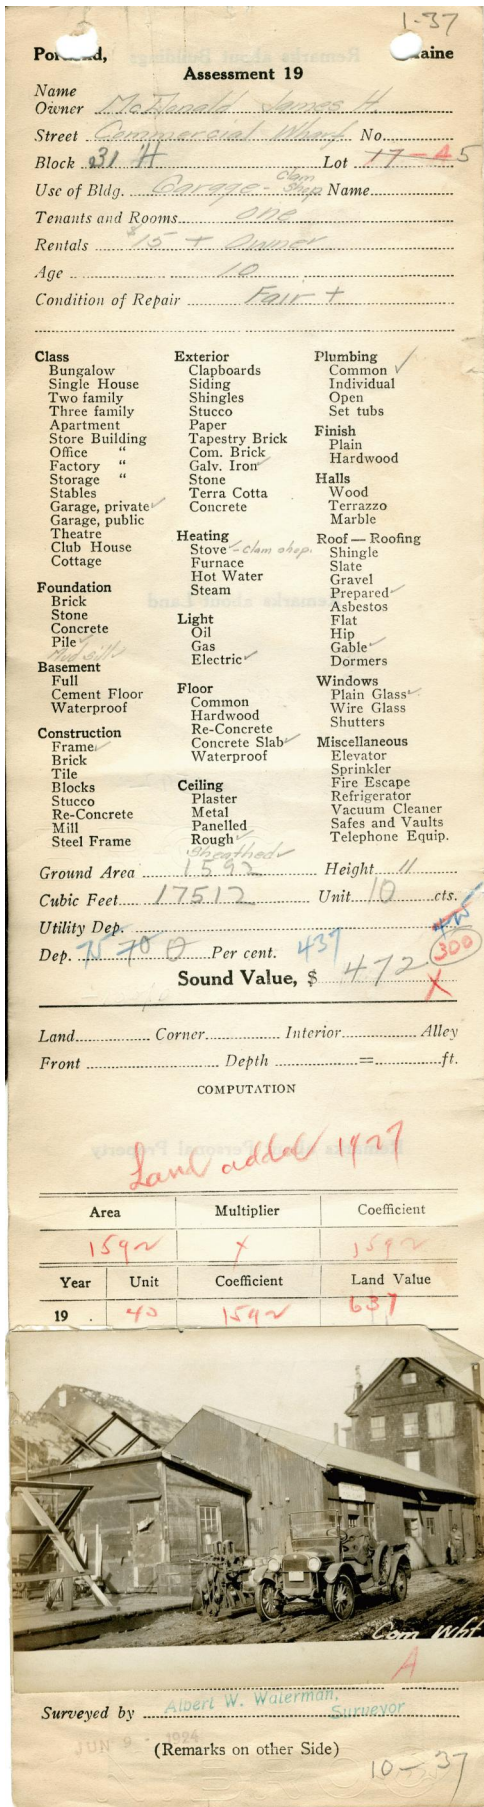 1-37
Portland, Maine
Assessment 19
Name
Owner McDonald James H.
Street Commercial Wharf No.
Block 31 H Lot 17-A 5
Use of Bldg. Garage - Clam Shop Name
Tenants and Rooms one
Rentals $15 + Owner
Age 10
Condition of Repair Fair +
Class
Bungalow
Single House
Two family
Three family
Apartment
Store Building
Office "
Factory "
Storage "
Stables
Garage, private ✓
Garage, public
Theatre
Club House
Cottage
Foundation
Brick
Stone
Concrete
Pile ✓
Mud sills
Basement
Full
Cement Floor
Waterproof
Construction
Frame ✓
Brick
Tile
Blocks
Stucco
Re-Concrete
Mill
Steel Frame
Exterior
Clapboards
Siding
Shingles
Stucco
Paper
Tapestry Brick
Com. Brick
Galv. Iron ✓
Stone
Terra Cotta
Concrete
Heating
Stove ✓ - Clam shop.
Furnace
Hot Water
Steam
Light
Oil
Gas
Electric ✓
Floor
Common
Hardwood
Re-Concrete
Concrete Slab ✓
Waterproof
Ceiling
Plaster
Metal
Panelled
Rough ✓
Sheathed ✓
Plumbing
Common ✓
Individual
Open
Set tubs
Finish
Plain
Hardwood
Halls
Wood
Terrazzo
Marble
Roof — Roofing
Shingle
Slate
Gravel
Prepared ✓
Asbestos
Flat
Hip
Gable ✓
Dormers
Windows
Plain Glass ✓
Wire Glass
Shutters
Miscellaneous
Elevator
Sprinkler
Fire Escape
Refrigerator
Vacuum Cleaner
Safes and Vaults
Telephone Equip.
Ground Area 1592 Height 11
Cubic Feet 17512 Unit 10 cts.
Utility Dep.
Dep. 75 70 Per cent. 437 300
Sound Value, $ 472 X
Land Corner Interior Alley
Front Depth = ft.
COMPUTATION
Land added 1927
Area Multiplier Coefficient
1592 X 1592
Year Unit Coefficient Land Value
19 40 1592 637
Com Whf
A
Surveyed by Albert W. Waterman,
Surveyor
JUN 9 - 1924
(Remarks on other Side)
10-37